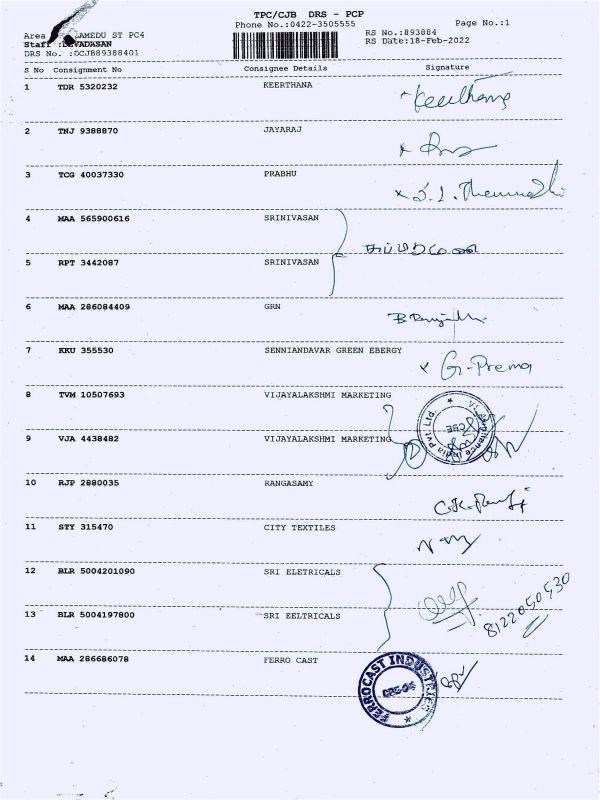 TPC/CJB DRS - PCP
Phone No.:0422-3505555
Page No.:1
Area LAMEDU ST PC4
RS No.:893884
Staff :DEVADASAN
RS Date:18-Feb-2022
DRS No. :DCJB89388401
S No Consignment No Consignee Details Signature
1 TDR 5320232 KEERTHANA Keerthana
2 TNJ 9388870 JAYARAJ
3 TCG 40037330 PRABHU
4 MAA 565900616 SRINIVASAN
5 RPT 3442087 SRINIVASAN
6 MAA 286084409 GRN
7 KKU 355530 SENNIANDAVAR GREEN EBERGY G. Prema
8 TVM 10507693 VIJAYALAKSHMI MARKETING
9 VJA 4438482 VIJAYALAKSHMI MARKETING
India Pvt. Ltd.
CBE
10 RJP 2880035 RANGASAMY
11 STY 315470 CITY TEXTILES
12 BLR 5004201090 SRI ELETRICALS
13 BLR 5004197800 SRI EELTRICALS
8122050530
14 MAA 286686078 FERRO CAST
FERROCAST INDUSTRIES